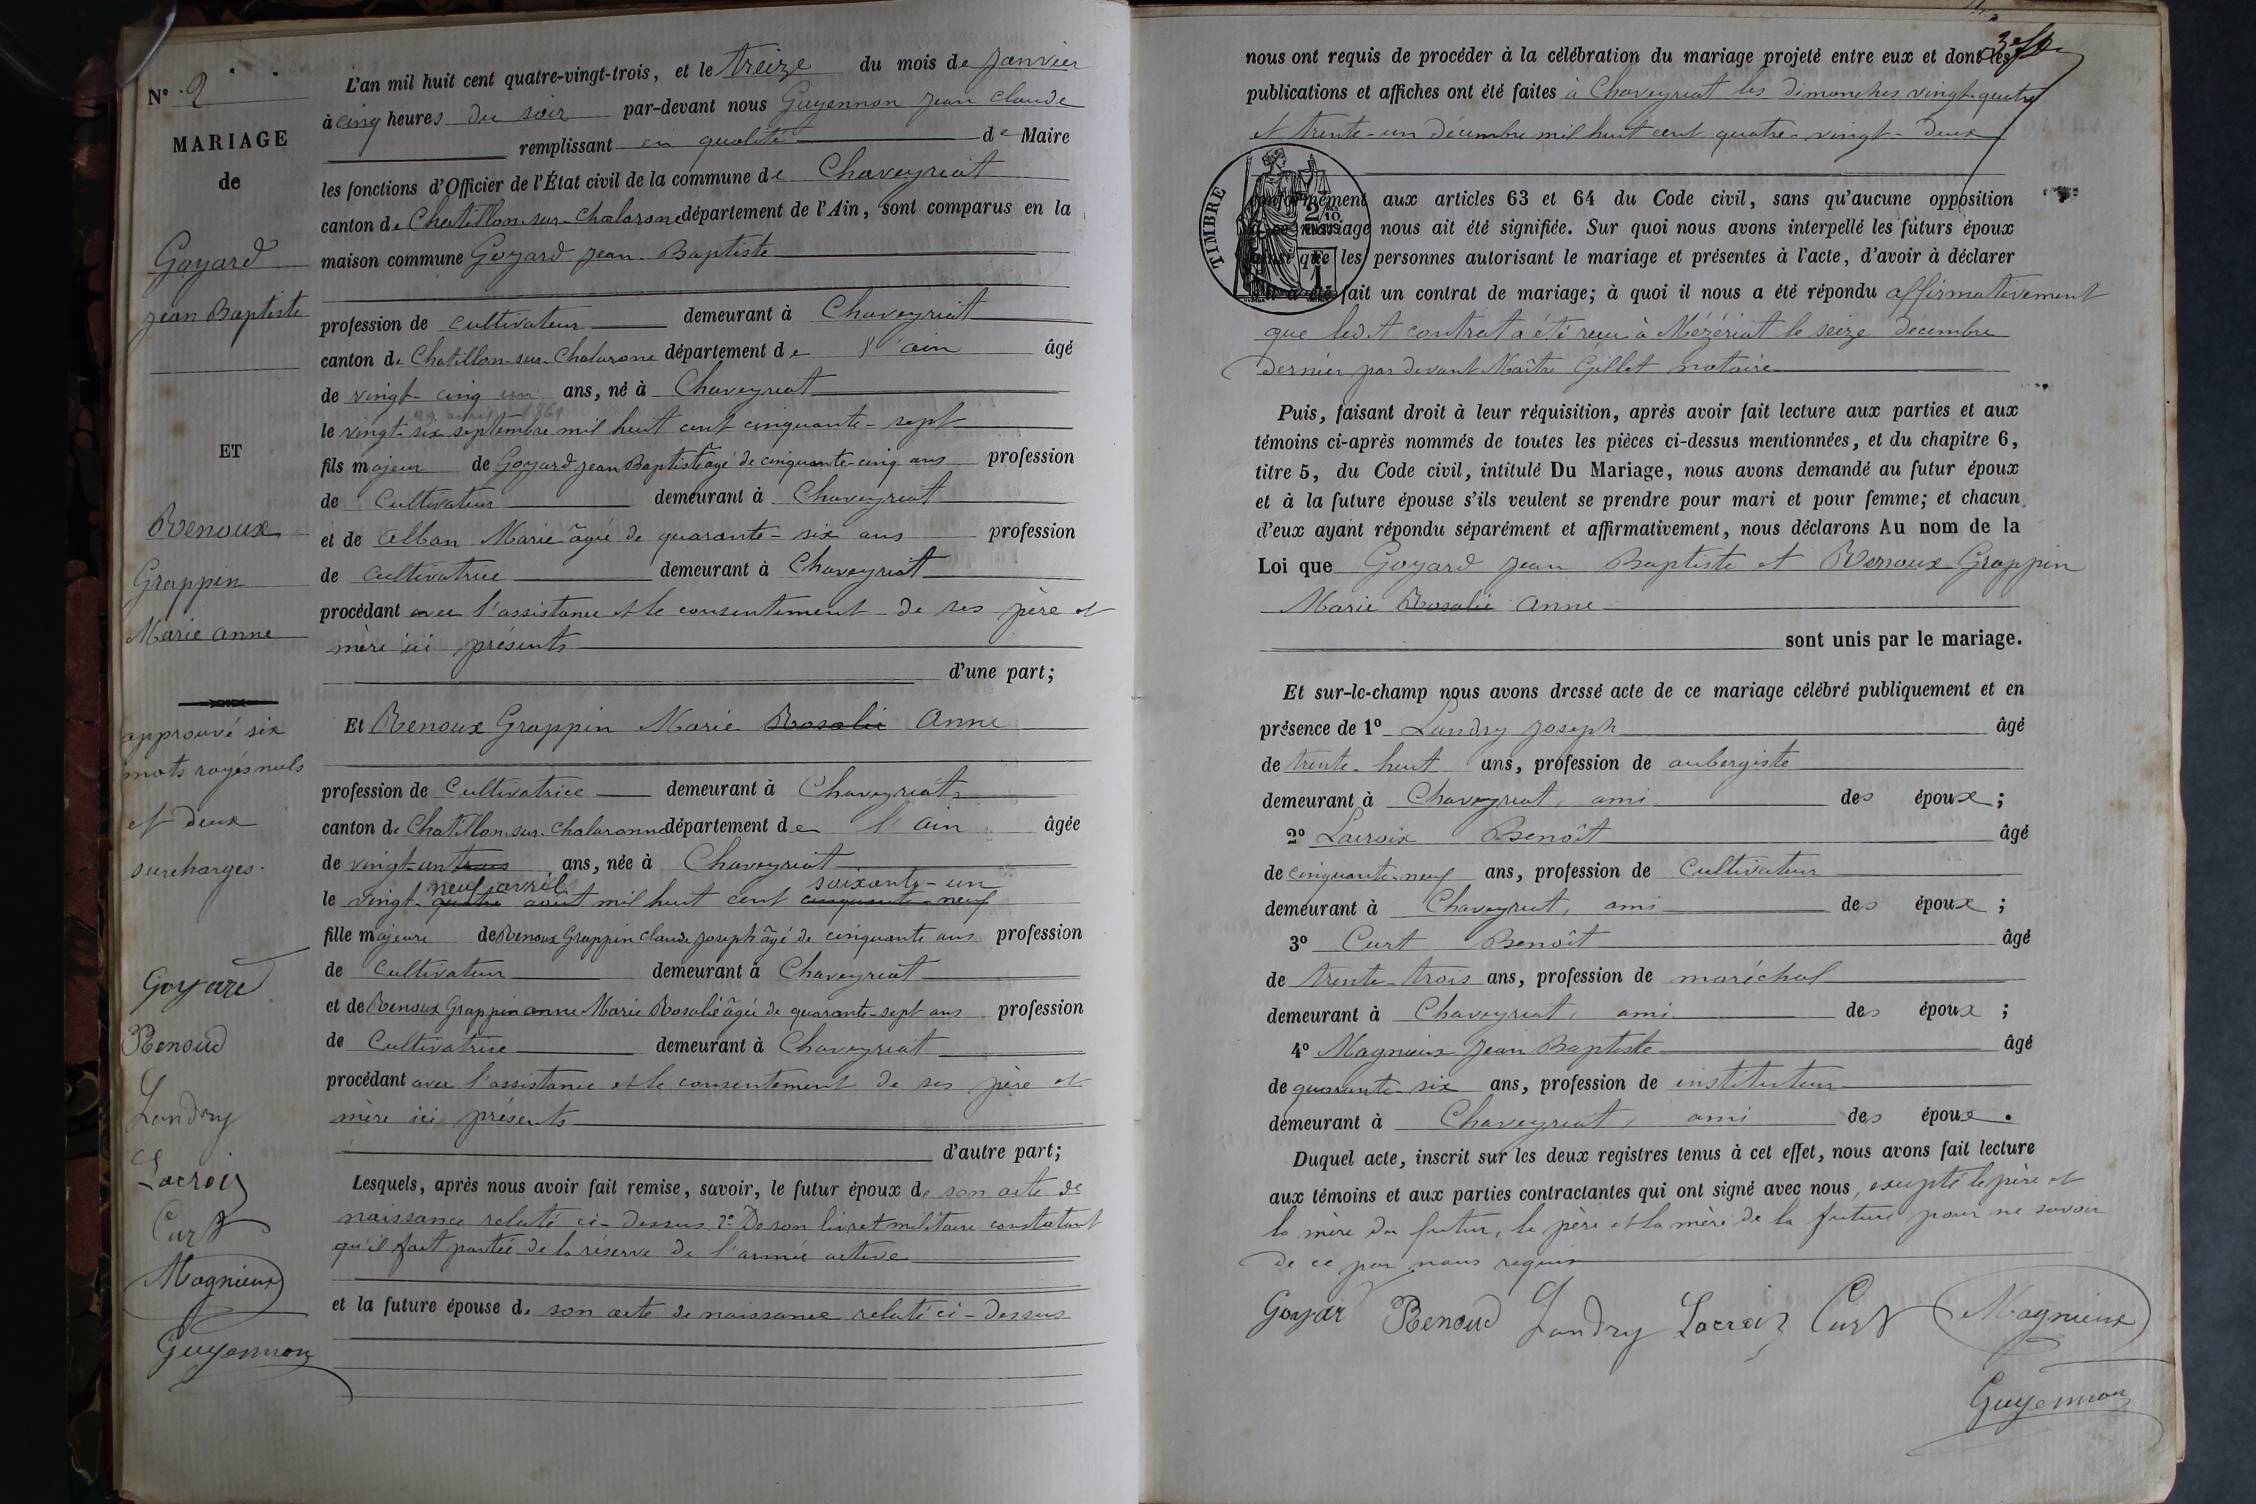 N° 2
MARIAGE
de
Goyard
Jean Baptiste
ET
Renoux
Grappin
Marie Anne
approuvé six
mots rayés nuls
et deux
surcharges.
Goyard
Renoud
Landry
Lacroix
Curt
Magnieux
Guyennon
L'an mil huit cent quatre-vingt-trois, et le treize du mois de Janvier
à cinq heures du soir par-devant nous Guyennon Jean Claude
remplissant en qualité de Maire
les fonctions d'Officier de l'État civil de la commune de Chaveyriat
canton de Chatillon-sur-Chalaronne département de l'Ain, sont comparus en la
maison commune Goyard Jean-Baptiste
profession de cultivateur demeurant à Chaveyriat
canton de Chatillon-sur-Chalaronne département de l'ain âgé
de vingt-cinq un ans, né à Chaveyriat
29 avril 1861
le vingt-six septembre mil huit cent cinquante-sept
fils majeur de Goyard Jean Baptiste âgé de cinquante-cinq ans profession
de Cultivateur demeurant à Chaveyriat
et de Alban Marie âgée de quarante-six ans profession
de cultivatrice demeurant à Chaveyriat
procédant avec l'assistance et le consentement de ses père et
mère ici présents
d'une part;
Et Renoux Grappin Marie Rosalie Anne
profession de Cultivatrice demeurant à Chaveyriat
canton de Chatillon-sur-Chalaronne département de l'ain âgée
de vingt-un trois ans, née à Chaveyriat
neuf avril soixante-un
le vingt-quatre août mil huit cent cinquante-neuf
fille majeure de Renoux Grappin Claude Joseph âgé de cinquante ans profession
de Cultivateur demeurant à Chaveyriat
et de Renoux Grappin anne Marie Rosalie âgée de quarante-sept ans profession
de Cultivatrice demeurant à Chaveyriat
procédant avec l'assistance et le consentement de ses père et
mère ici présents
d'autre part;
Lesquels, après nous avoir fait remise, savoir, le futur époux de son acte de
naissance relaté ci-dessus 2° De son livret militaire constatant
qu'il fait partie de la réserve de l'armée active
et la future épouse de son acte de naissance relaté ci-dessus
nous ont requis de procéder à la célébration du mariage projeté entre eux et dont les
publications et affiches ont été faites à Chaveyriat les dimanches vingt-quatre
et trente-un décembre mil huit cent quatre-vingt-deux
TIMBRE
conformément aux articles 63 et 64 du Code civil, sans qu'aucune opposition
à ce mariage nous ait été signifiée. Sur quoi nous avons interpellé les futurs époux
ainsi que les personnes autorisant le mariage et présentes à l'acte, d'avoir à déclarer
s'il a été fait un contrat de mariage; à quoi il nous a été répondu affirmativement
que ledit contrat a été reçu à Mézériat le seize décembre
dernier par devant Maître Gillet notaire
Puis, faisant droit à leur réquisition, après avoir fait lecture aux parties et aux
témoins ci-après nommés de toutes les pièces ci-dessus mentionnées, et du chapitre 6,
titre 5, du Code civil, intitulé Du Mariage, nous avons demandé au futur époux
et à la future épouse s'ils veulent se prendre pour mari et pour femme; et chacun
d'eux ayant répondu séparément et affirmativement, nous déclarons Au nom de la
Loi que Goyard Jean Baptiste et Renoux Grappin
Marie Rosalie Anne
sont unis par le mariage.
Et sur-le-champ nous avons dressé acte de ce mariage célébré publiquement et en
présence de 1° Landry Joseph âgé
de trente-huit ans, profession de aubergiste
demeurant à Chaveyriat, ami des époux;
2° Lacroix Benoît âgé
de cinquante-neuf ans, profession de Cultivateur
demeurant à Chaveyriat, ami des époux;
3° Curt Benoît âgé
de trente-trois ans, profession de maréchal
demeurant à Chaveyriat, ami des époux;
4° Magnieux Jean Baptiste âgé
de quarante-six ans, profession de instituteur
demeurant à Chaveyriat, ami des époux.
Duquel acte, inscrit sur les deux registres tenus à cet effet, nous avons fait lecture
aux témoins et aux parties contractantes qui ont signé avec nous, excepté le père et
la mère du futur, le père et la mère de la future pour ne savoir
de ce par nous requis
Goyar Renoud Landry Lacroix Curt Magnieux
Guyennon